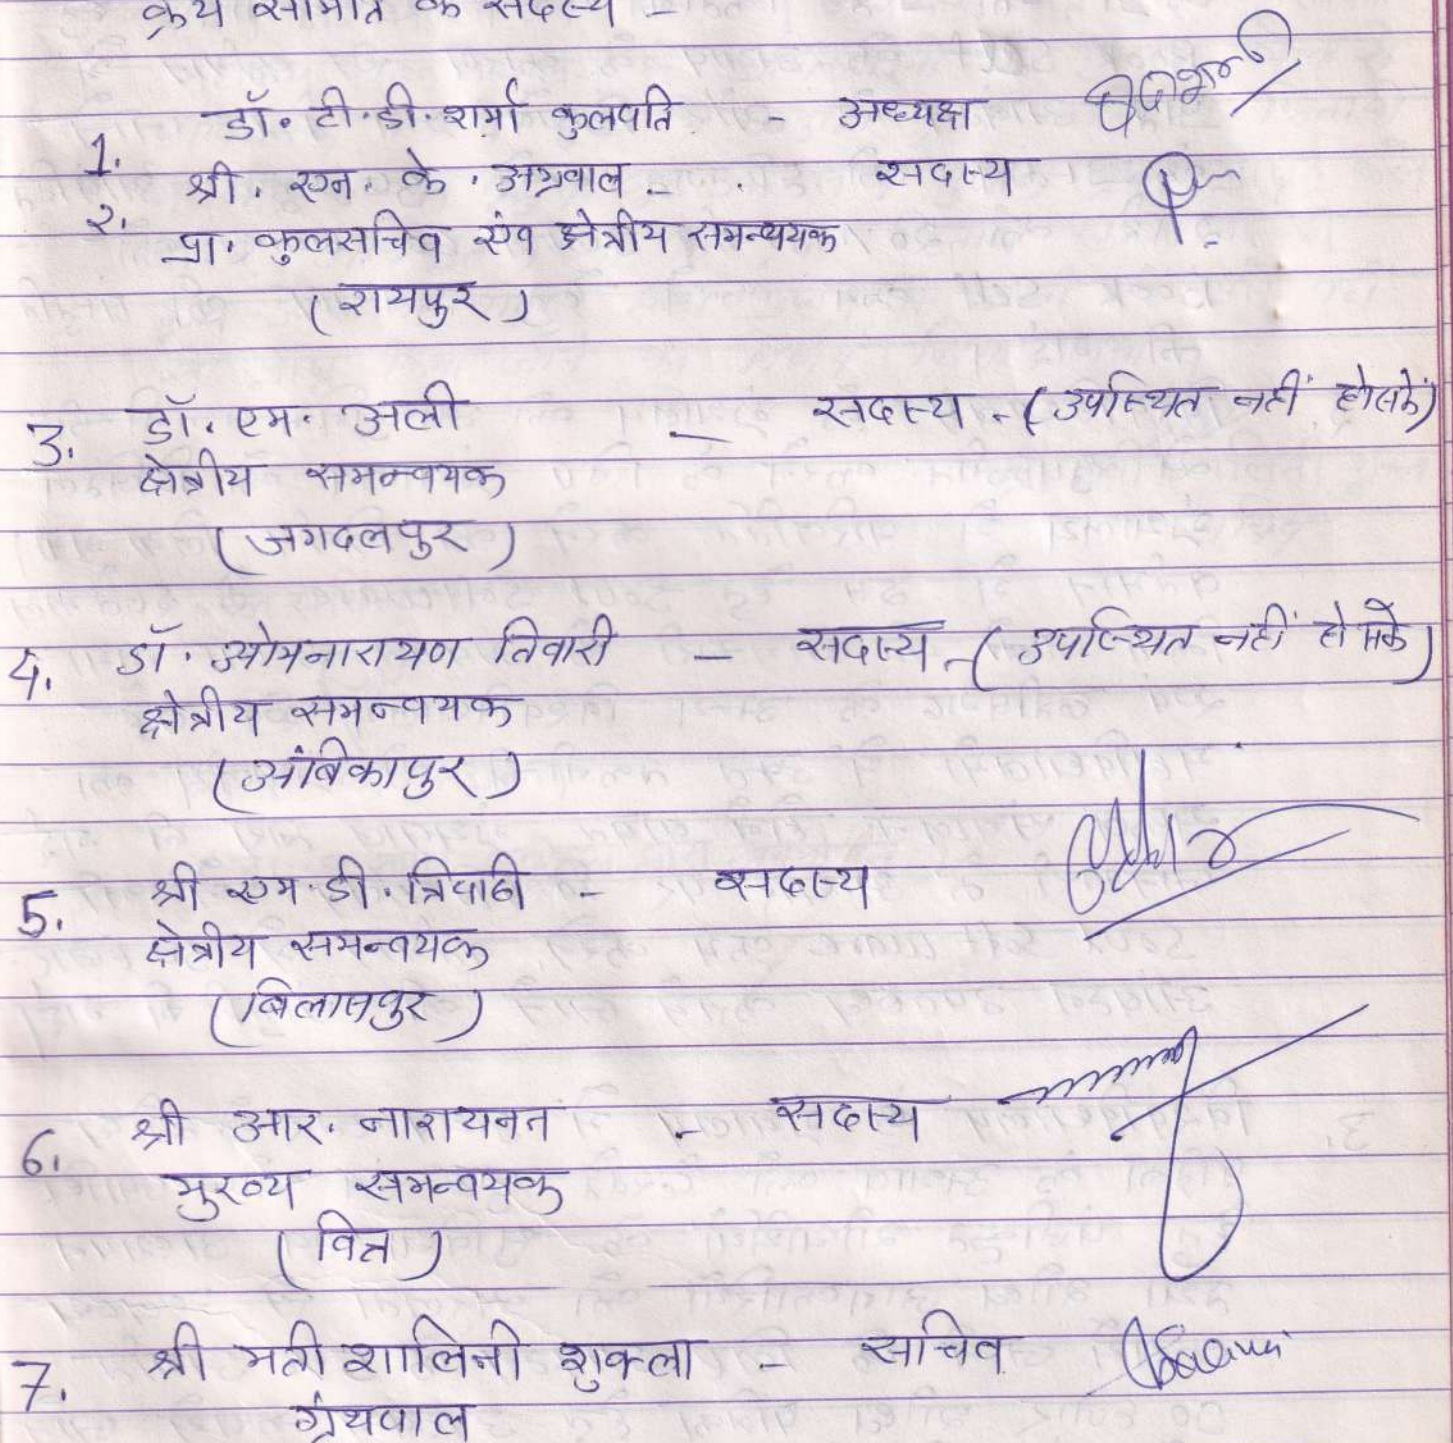 क्रय समिति के सदस्य -
1. डॉ. टी.डी. शर्मा कुलपति - अध्यक्ष
२. श्री. एन. के. अग्रवाल - सदस्य
प्रा. कुलसचिव एंव क्षेत्रीय समन्वयक
(रायपुर)
3. डॉ. एम. अली - सदस्य - (उपस्थित नहीं हो सके)
क्षेत्रीय समन्वयक
(जगदलपुर)
4. डॉ. ओमनारायण तिवारी - सदस्य - (उपस्थित नहीं हो सके)
क्षेत्रीय समन्वयक
(अंबिकापुर)
5. श्री एम.डी. त्रिपाठी - सदस्य
क्षेत्रीय समन्वयक
(बिलासपुर)
6. श्री आर. नारायनन - सदस्य
मुख्य समन्वयक
(वित्त)
7. श्री मती शालिनी शुक्ला - सचिव
ग्रंथपाल